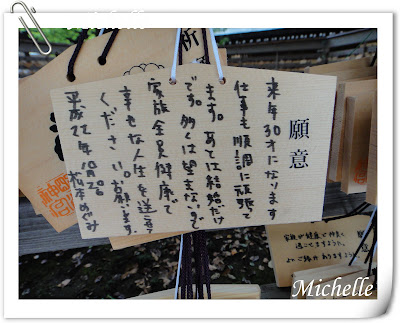 Michelle
願意
来年30才になります
仕事も順調に頑張って
ます。あとは結婚だけ
です。多くは望まないので
家族全員健康で
幸せな人生を送らせて
ください。お願いします。
平成22年10月
松本めぐみ
家族が健康で仲良く
過ごせますように。
ご縁がありますように。
Michelle